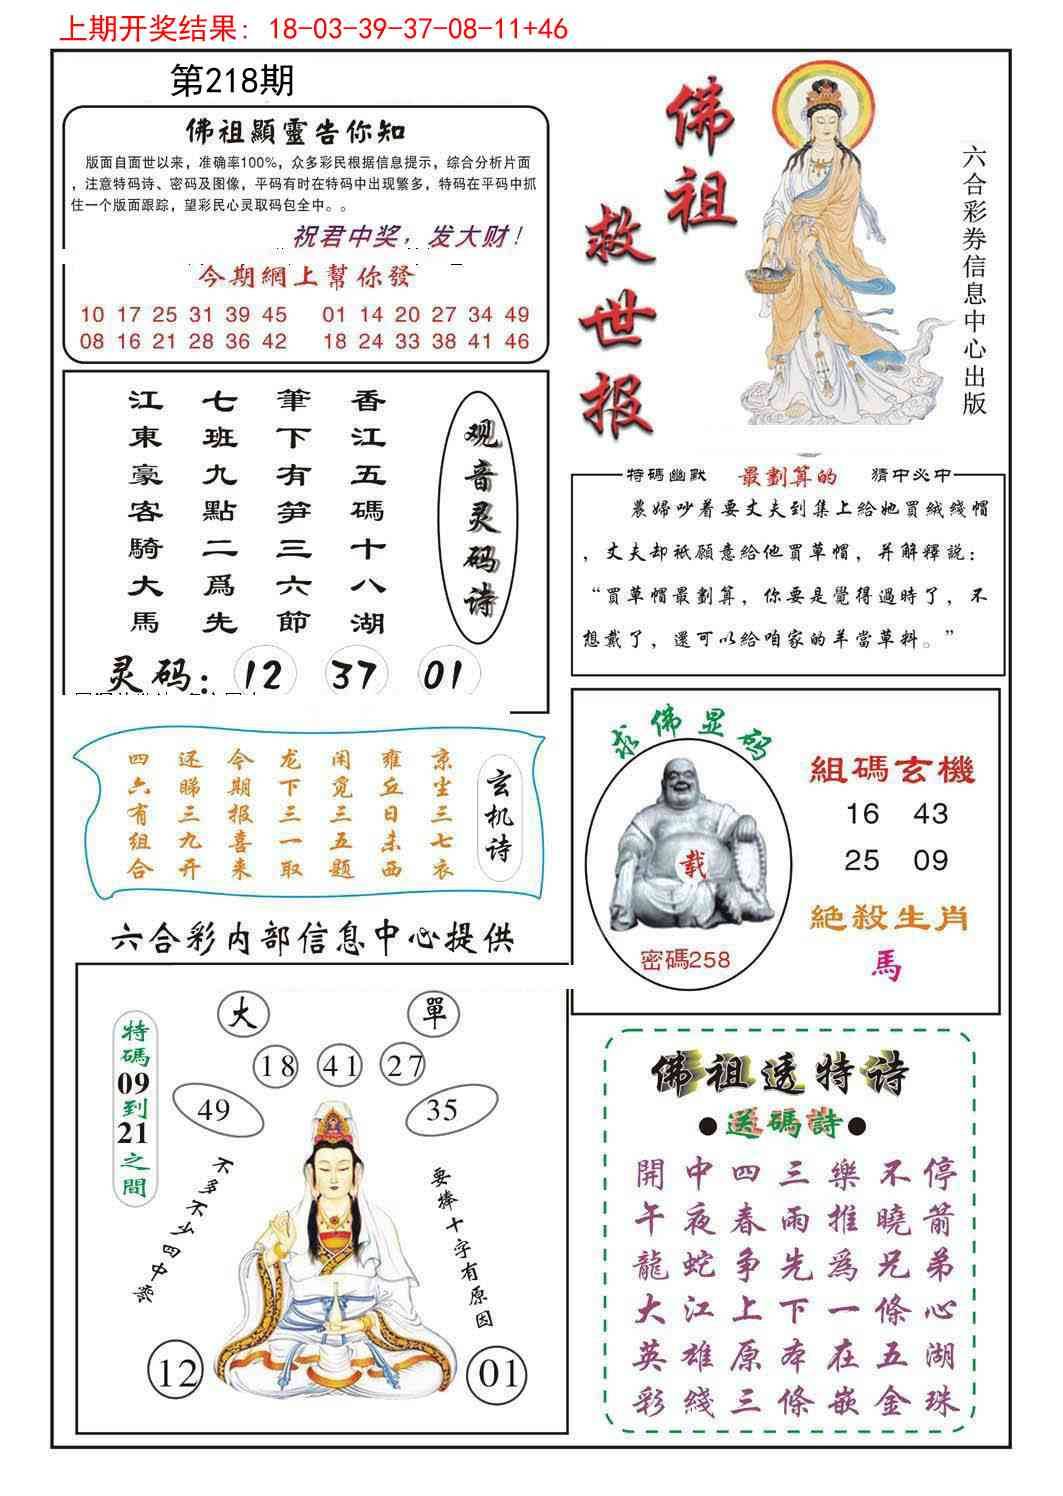 上期开奖结果: 18-03-39-37-08-11+46
第218期
佛祖顯靈告你知
版面自面世以来，准确率100%，众多彩民根据信息提示，综合分析片面
，注意特码诗、密码及图像，平码有时在特码中出现繁多，特码在平码中抓
住一个版面跟踪，望彩民心灵取码包全中。。
祝君中奖，发大财！
今期網上幫你發
10 17 25 31 39 45 01 14 20 27 34 49
08 16 21 28 36 42 18 24 33 38 41 46
佛祖
救世报
六合彩券信息中心出版
观音灵码诗
香江五碼十八湖
筆下有笋三六節
七班九點二爲先
江東豪客騎大馬
灵码：12 37 01
特碼幽默 最劃算的 猜中必中
農婦吵着要丈夫到集上给她買絨綫帽
，丈夫却祇願意给他買草帽，并解釋説：
“買草帽最劃算，你要是覺得過時了，不
想戴了，還可以给咱家的羊當草料。”
玄机诗
京尘三七衣
雍丘日未西
闲觅五题
龙下三一取
今期报喜来
还睇三九开
四六有组合
求佛显码
载
密碼258
組碼玄機
16 43
25 09
絕殺生肖
馬
六合彩内部信息中心提供
大 單
18 41 27
49 35
特碼09到21之間
不多不少四中齋
要捧十字有原因
12 01
佛祖透特诗
●送碼詩●
開中四三樂不停
午夜春雨推曉箭
龍蛇争先爲兄弟
大江上下一條心
英雄原本在五湖
彩綫三條嵌金珠